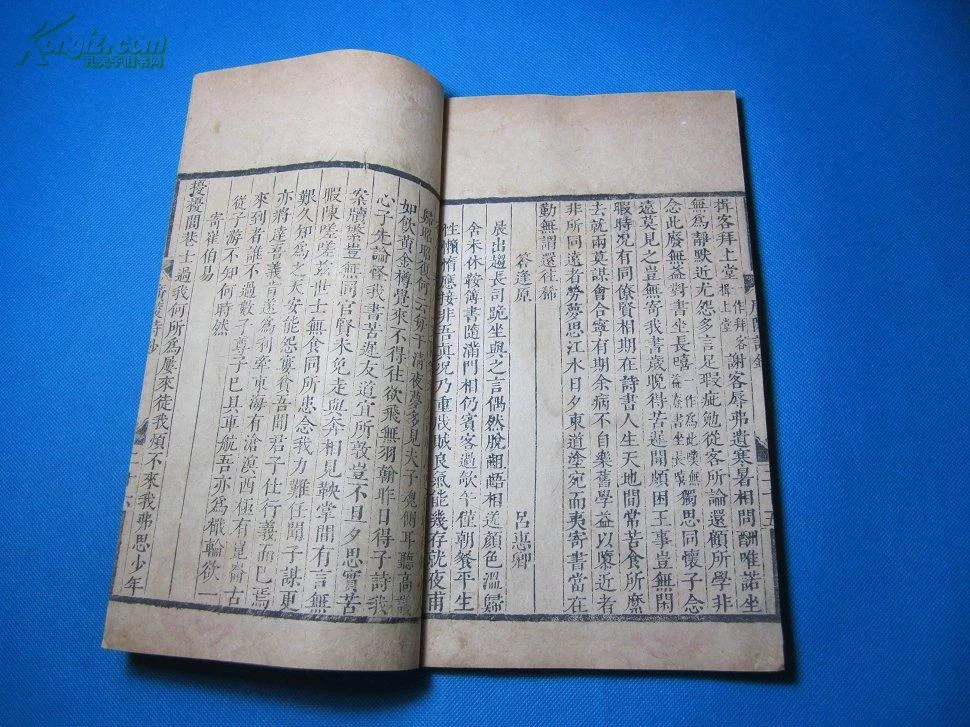 Kongfz.com
孔夫子旧书网
揖客拜上堂 作拜客揖上堂 謝客辱弗遺寒暑相問酬唯諾坐
無爲靜默近尤怨多言足瑕疵勉從客所論還顧所學非
念此廢無益對書坐長嘻 一作爲此嘆無益弃書坐長嘆 獨思同懷子念
遠莫見之豈無寄我書歲晚得苦遲開顏困王事豈無閑
暇時况有同僚賢相期在詩書人生天地間常苦食所縻
去就兩莫謀會合寧有期余病不自樂舊學益以隳近者
非所同遠者勞夢思江水日夕東道塗宛而夷寄書當在
勤無謂還往稀
答逢原 呂惠卿
晨出趨長司跪坐與之言偶然脫齟齬相送顏色溫歸
舍未休鞍簿書隨滿門相仍賓客過欬午僅朝餐平生
性懶惰應接非吾眞况乃重戕賊良氣能幾存就夜甫
歸
如飲黃金樽覺來不得往欲飛無羽翰昨日得子詩我
心子先論怪我書苦遲友道宜所敦豈不旦夕思實苦
案牘縈豈無同官賢未免走與奔相見鞅掌間有言無
暇陳嗟嗟玆世士無食同所患念我力難任聞子謀更
艱久知爲之天安能怨窶貧吾聞君子仕行義而已焉
亦將達吾義肯遠爲列率東海有滄溟西極有崑崙古
來到者誰不過數子尊子已具車航吾亦爲檝輪欲一
從子游不知何時然
寄崔伯易
擾擾閭巷士過我何所爲屢來徒我煩不來我弗思少年
二十五
二十六